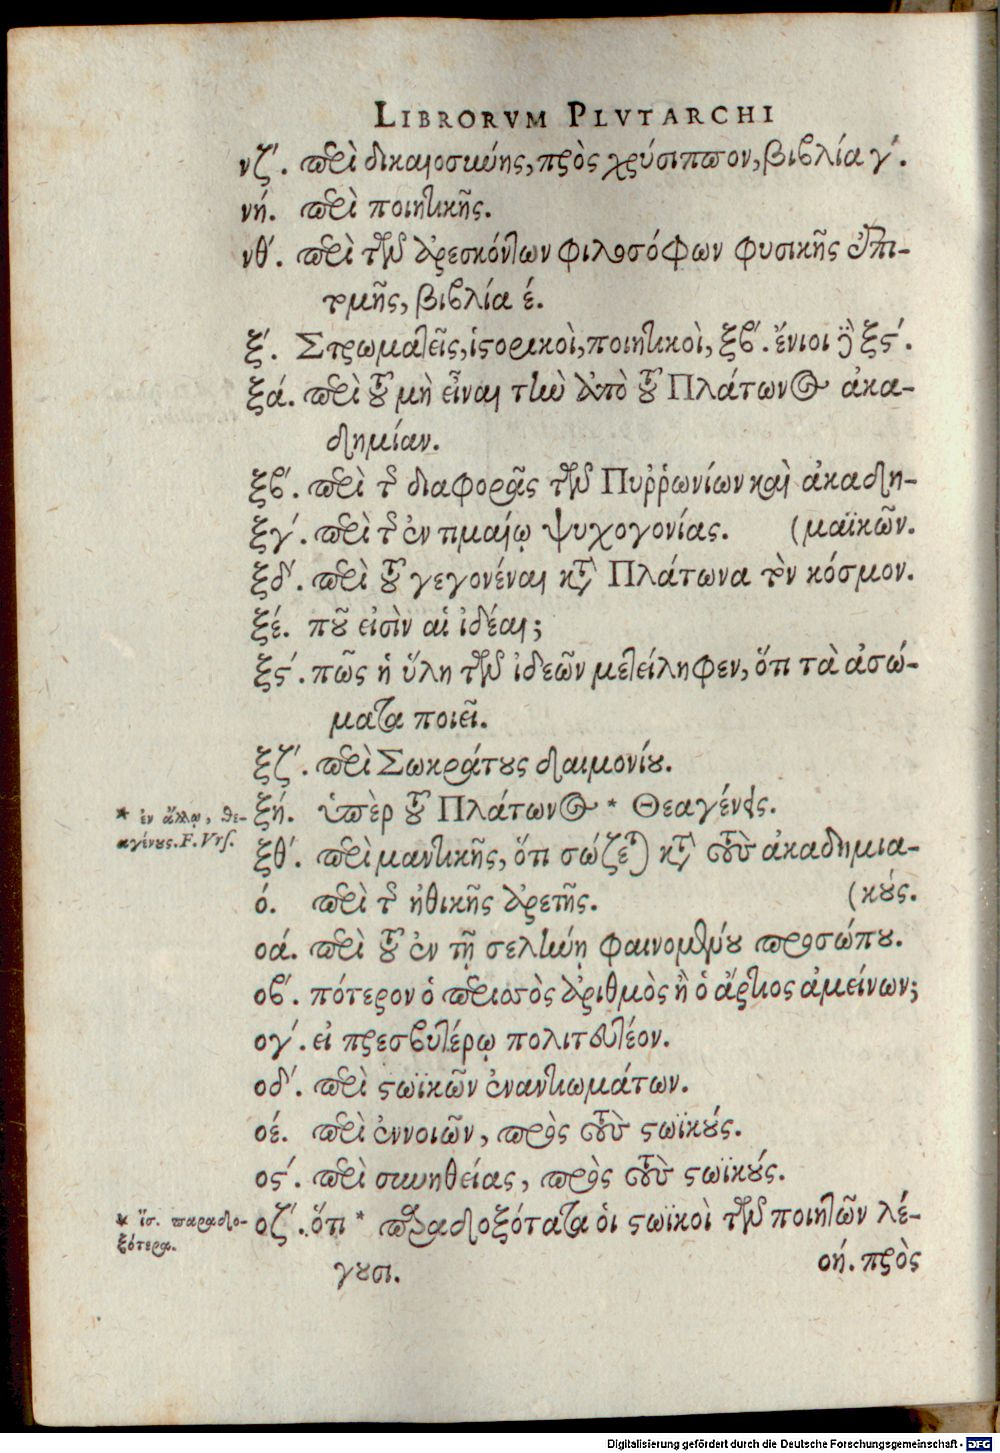 LIBRORVM PLVTARCHI
νζ´. περὶ δικαιοσύνης, πρὸς χρύσιππον, βιβλία γ´.
νή. περὶ ποιητικῆς.
νθ´. περὶ τῶν ἀρεσκόντων φιλοσόφων φυσικῆς ἐπι-
τομῆς, βιβλία έ.
ξ´. Στρωματεῖς, ἱστορικοὶ, ποιητικοὶ, ξβ´. ἔνιοι δὲ ξς´.
ξά. περὶ τοῦ μὴ εἶναι τὴν ἀπὸ τοῦ Πλάτωνος ἀκα-
δημίαν.
ξβ´. περὶ τῆς διαφορᾶς τῶν Πυῤῥωνίων καὶ ἀκαδη-
ξγ´. περὶ τῆς ἐν τιμαίῳ ψυχογονίας. (μαϊκῶν.
ξδ´. περὶ τοῦ γεγονέναι κατὰ Πλάτωνα τὸν κόσμον.
ξέ. ποῦ εἰσὶν αἱ ἰδέαι;
ξς´. πῶς ἡ ὕλη τῶν ἰδεῶν μετείληφεν, ὅτι τὰ ἀσώ-
ματα ποιεῖ.
ξζ´. περὶ Σωκράτους δαιμονίου.
ξή. ὑπὲρ τοῦ Πλάτωνος * Θεαγένους.
* ἐν ἄλλῳ, θε-
αγένους. F. Vrs.
ξθ´. περὶ μαντικῆς, ὅτι σώζεται κατὰ τοὺς ἀκαδημια-
ό. περὶ τῆς ἠθικῆς ἀρετῆς. (κούς.
οά. περὶ τοῦ ἐν τῇ σελήνῃ φαινομένου προσώπου.
οβ´. πότερον ὁ περισσὸς ἀριθμὸς ἢ ὁ ἄρτιος ἀμείνων;
ογ´. εἰ πρεσβυτέρῳ πολιτευτέον.
οδ´. περὶ στωϊκῶν ἐναντιωμάτων.
οέ. περὶ ἐννοιῶν, πρὸς τοὺς στωϊκούς.
ος´. περὶ συνηθείας, πρὸς τοὺς στωϊκούς.
οζ´. ὅτι * παραδοξότατα οἱ στωϊκοὶ τῶν ποιητῶν λέ-
* ἴσ. παραδο-
ξότερα.
γουσι. οή. πρὸς
Digitalisierung gefördert durch die Deutsche Forschungsgemeinschaft - DFG